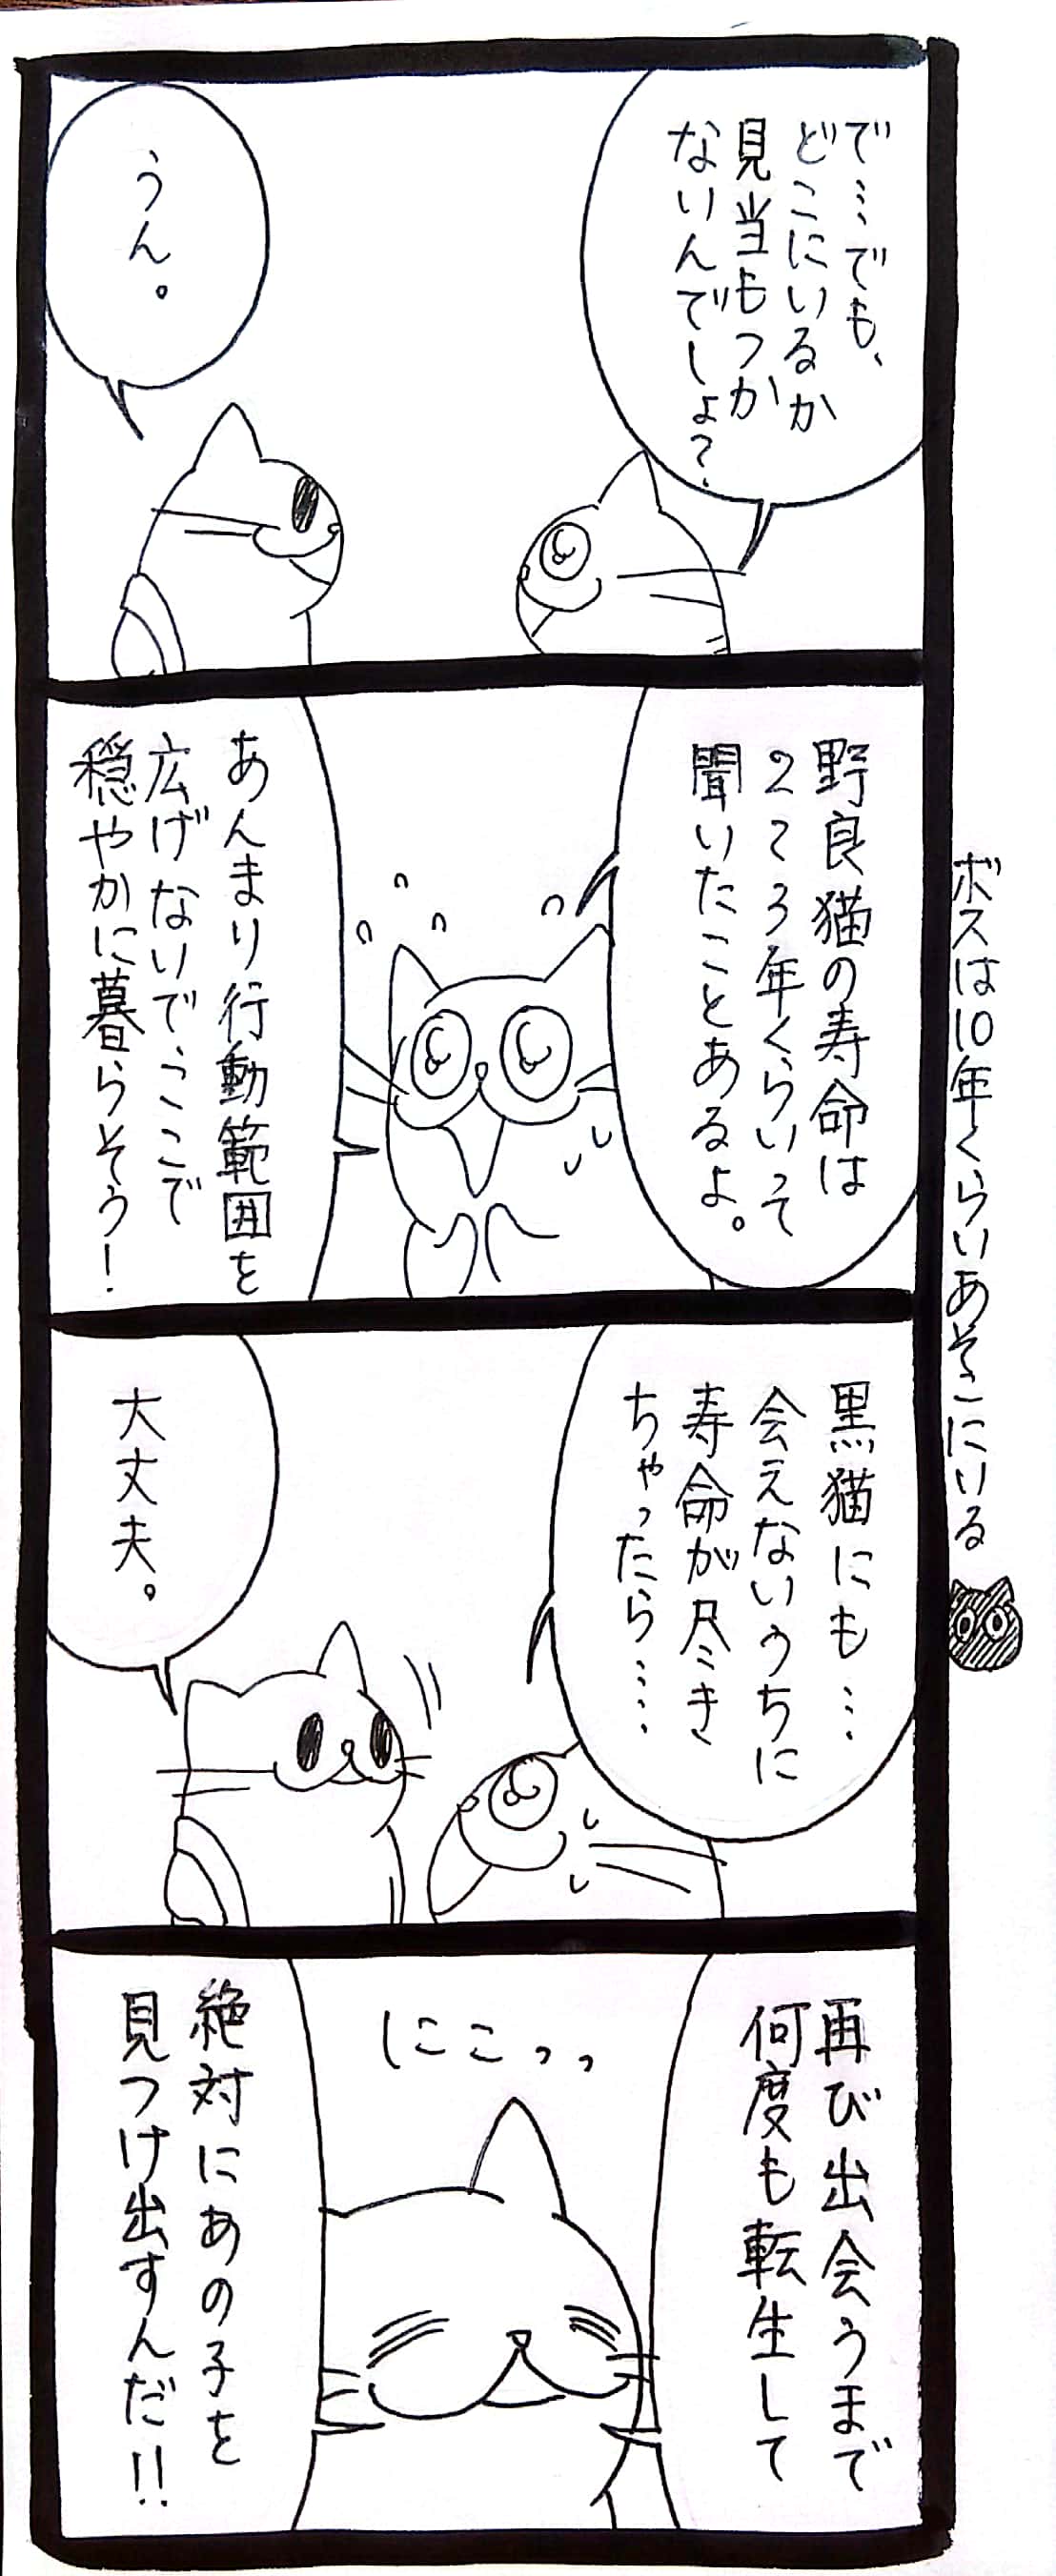 で…でも、
どこにいるか
見当もつか
ないんでしょ？
うん。
野良猫の寿命は
2〜3年くらいって
聞いたことあるよ。
あんまり行動範囲を
広げないでここで
穏やかに暮らそう！
黒猫にも…
会えないうちに
寿命が尽き
ちゃったら……
大丈夫。
再び出会うまで
何度も転生して
にこっっ
絶対にあの子を
見つけ出すんだ!!
ボスは10年くらいあそこにいる